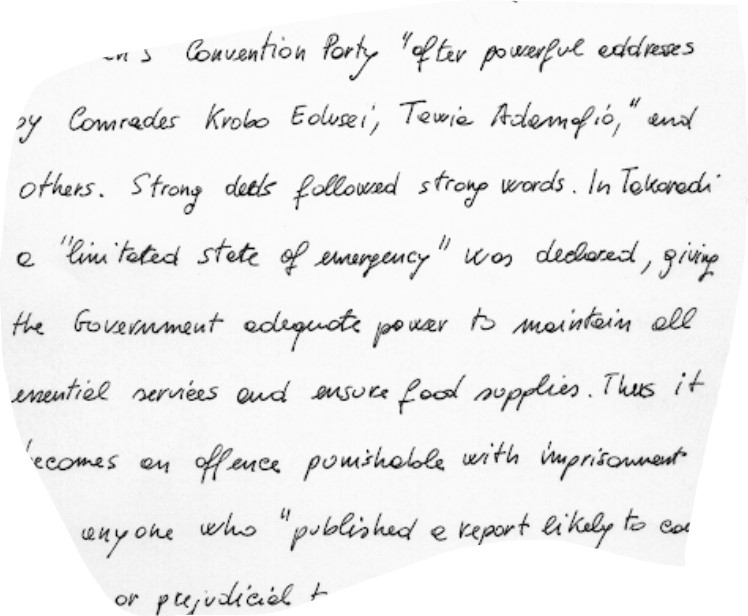 Convention Party "after powerful addresses
by Comrades Krobo Edusei, Tawia Adamafio," and
others. Strong deeds followed strong words. In Takoradi
a "limitated state of emergency" was declared, giving
the Government adequate power to maintain all
essential services and ensure food supplies. Thus it
becomes an offence punishable with imprisonment
anyone who "published a report likely to
or prejudicial